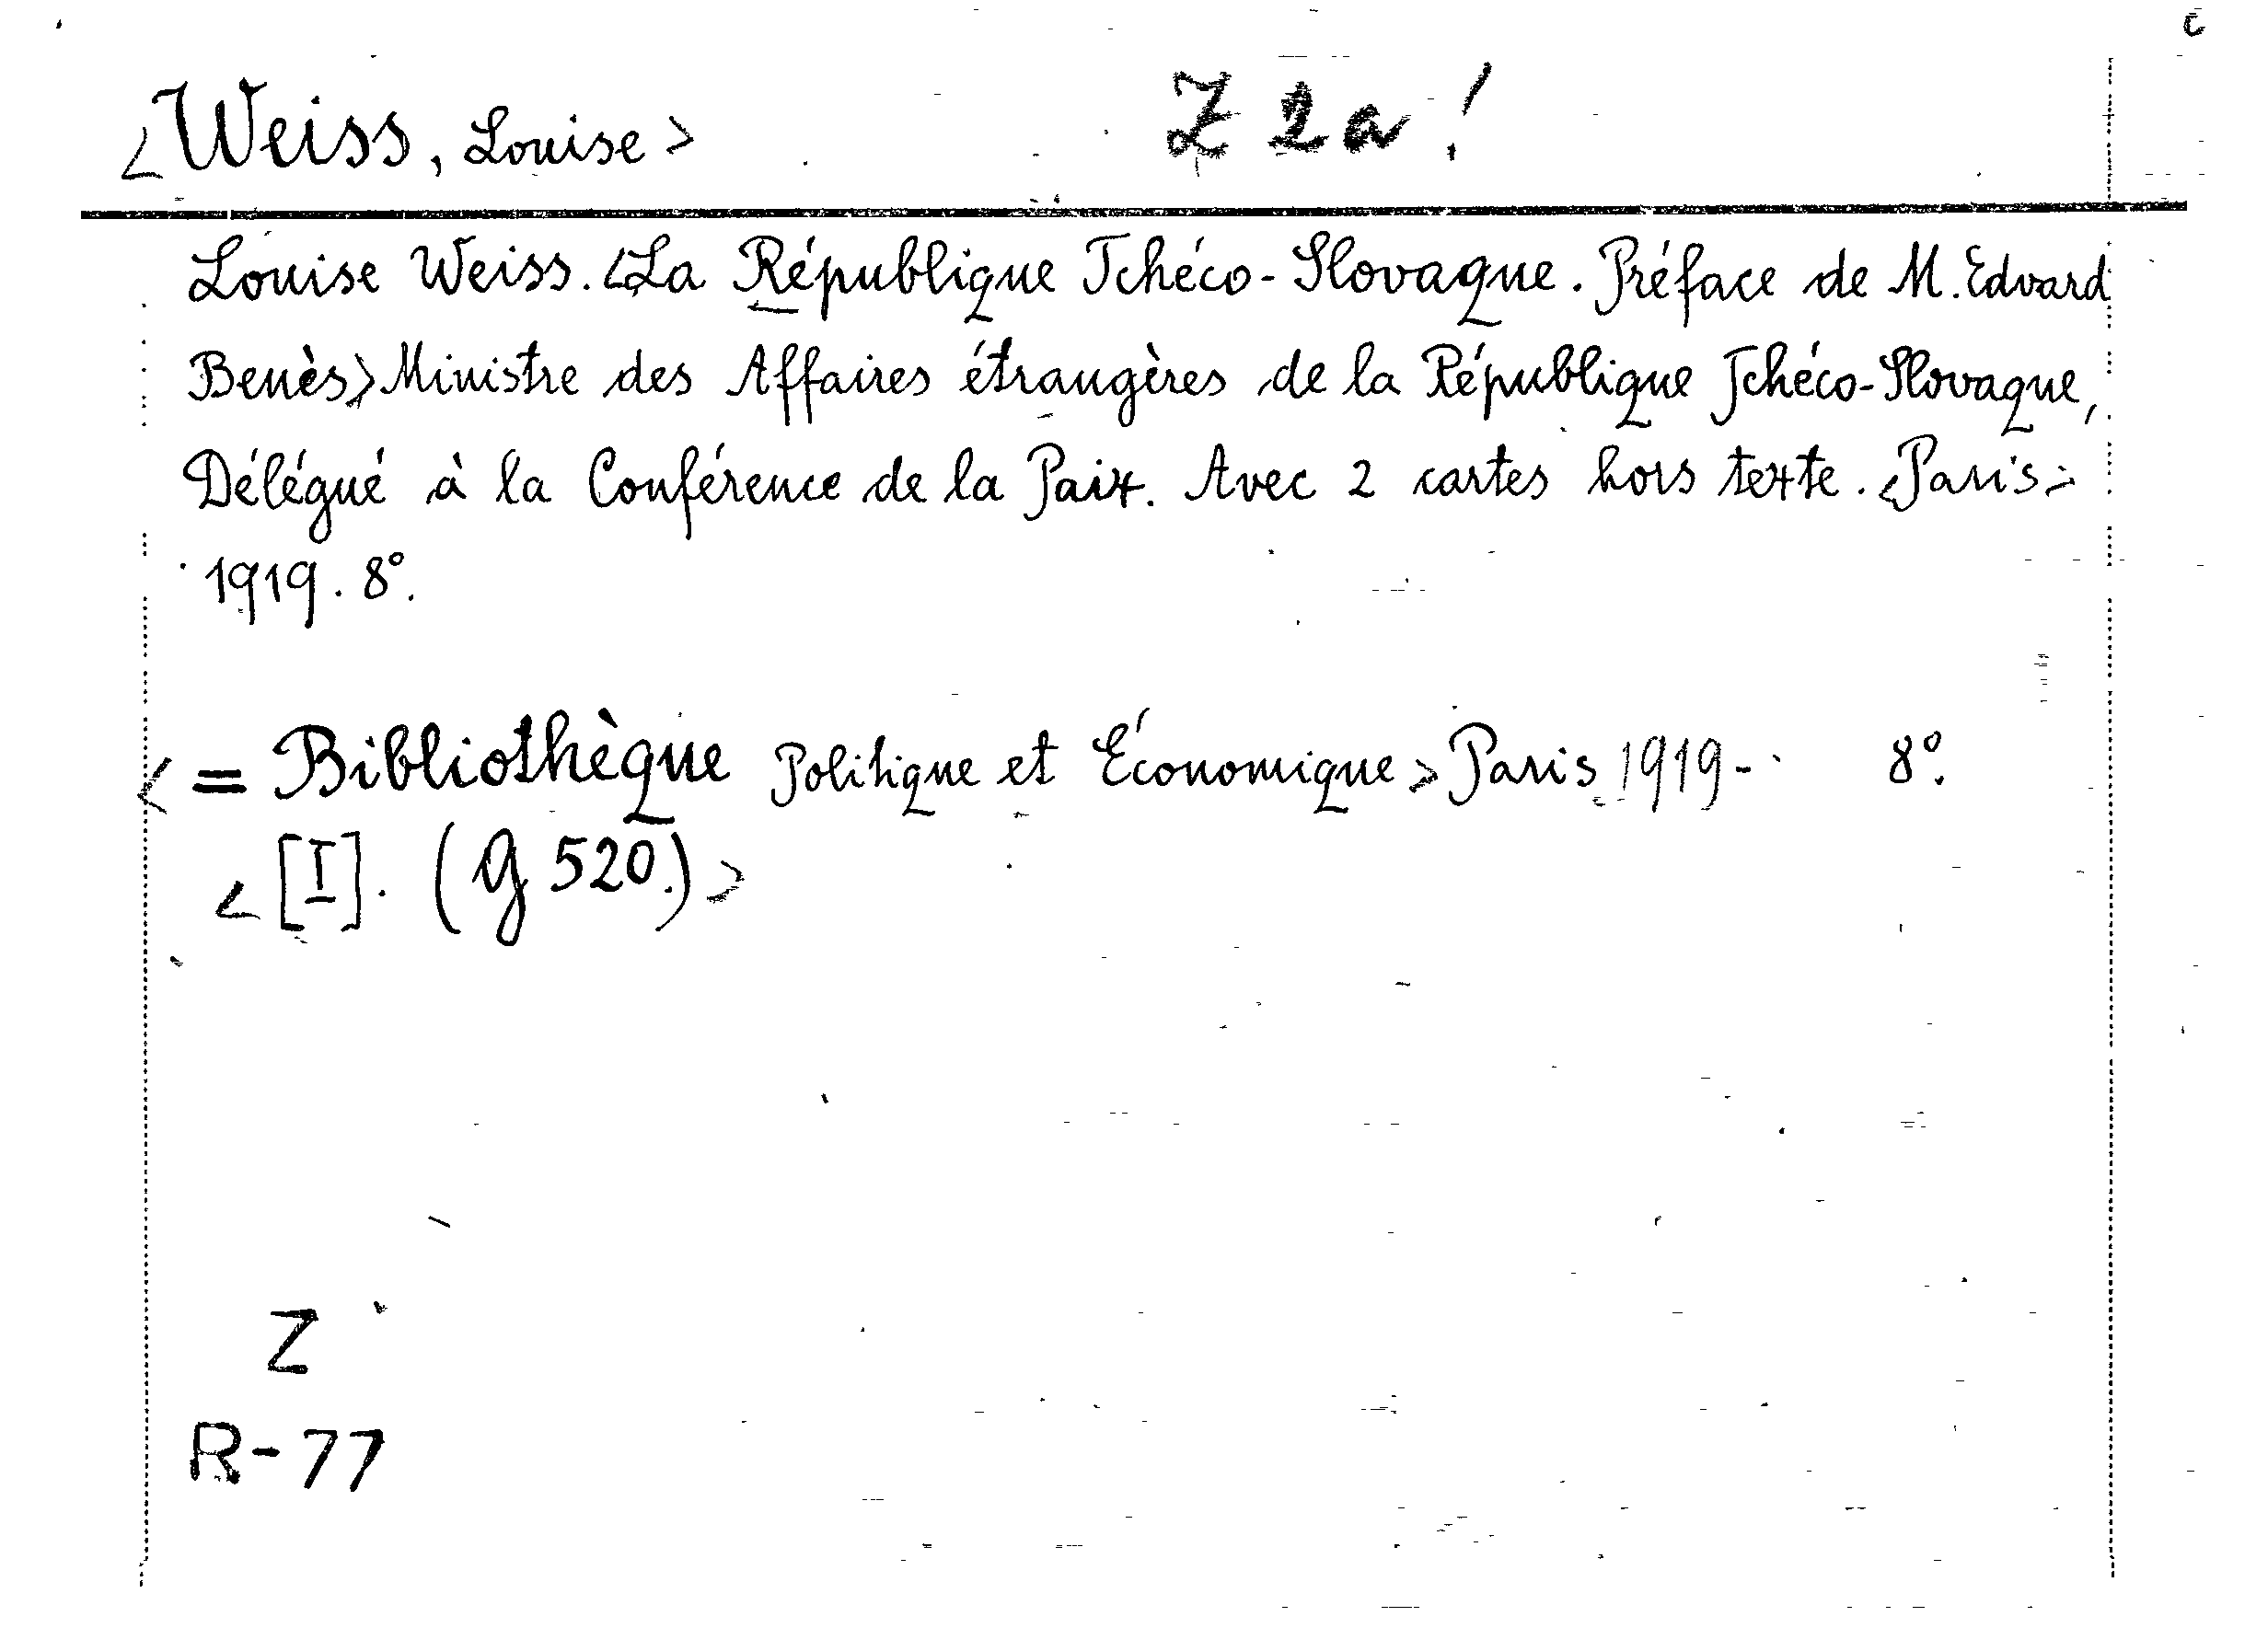 <Weiss, Louise> Z 2a!
Louise Weiss. <La République Tchéco-Slovaque. Préface de M. Edvard
Benès> Ministre des Affaires étrangères de la République Tchéco-Slovaque,
Délégué à la Conférence de la Paix. Avec 2 cartes hors texte. <Paris>
1919. 8°.
<= Bibliothèque Politique et Économique> Paris 1919- 8°.
<[I]. (G 520.)>
Z
R-77